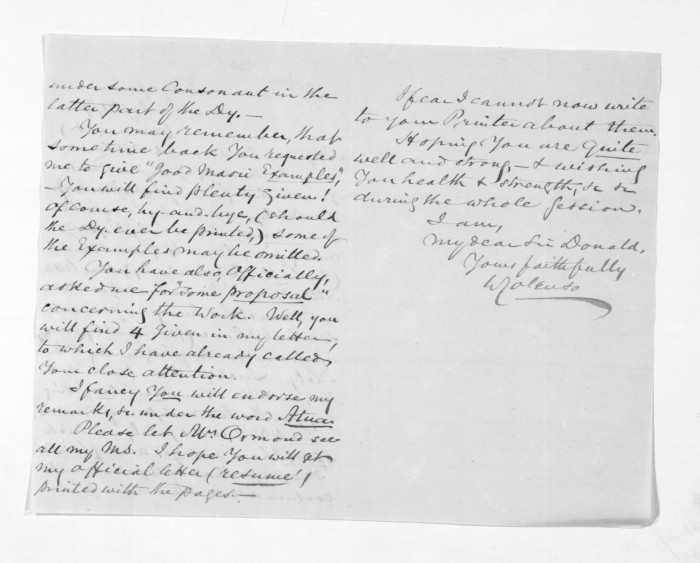 under some Consonant in the
latter part of the Dy. —
You may remember, that
sometime back You requested
me to give "Good Maori Examples",
— You will find plenty given!
of course, by-and-bye, (should
the Dy. ever be printed,) some of
the Examples may be omitted.
You have also, Officially,
asked me for "some proposal"
concerning the Work. Well, you
will find 4 given in my letter,
to which I have already called
Your close attention.
I fancy You will endorse my
remarks, &c. under the word Atua.
Please let Mr. Ormond see
all my Ms. I hope You will get
my official letter (resume!)
printed with the pages. —
I fear I cannot now write
to your Printer about them.
Hoping You are Quite
well and strong, — & wishing
You health & strength, &c &c
during the whole Session.
I am,
My dear Sir Donald,
Yours faithfully
W Colenso